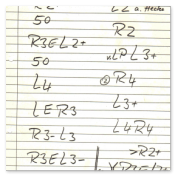 50
R3EL2+
50
L4
LER3
R3-L3
R3EL3-
L2 a. Hecke
R2
xLPL3+
② R4
L3+
L4R4
>R2+